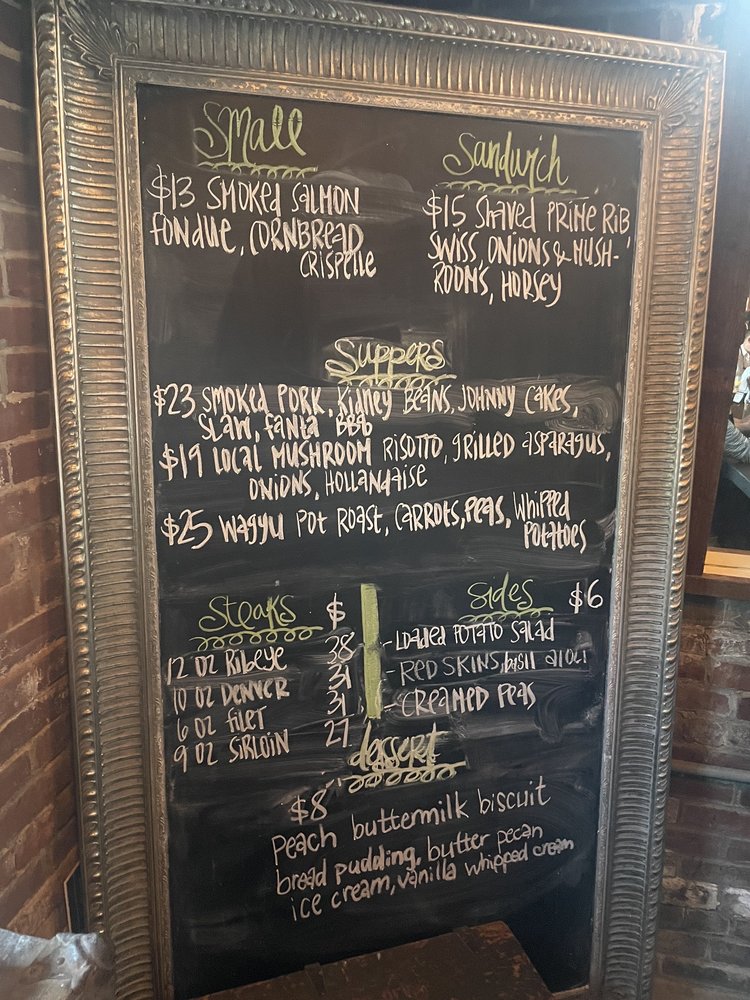 Small
$13 Smoked Salmon
Fondue, Cornbread
Crispelle
Sandwich
$15 Shaved Prime Rib,
Swiss, Onions & Mush-
rooms, Horsey
Suppers
$23 Smoked Pork, Kidney Beans, Johnny Cakes,
Slaw, Fanta BBQ
$19 Local Mushroom Risotto, grilled asparagus,
Onions, Hollandaise
$25 Wagyu Pot Roast, Carrots, Peas, Whipped
Potatoes
Steaks $
12 oz Ribeye 38
10 oz Denver 31
6 oz Filet 31
9 oz Sirloin 27
Sides $6
- Loaded Potato Salad
- Red Skins, basil aioli
- Creamed Peas
dessert
$8
Peach buttermilk biscuit
bread pudding, butter pecan
ice cream, vanilla whipped cream